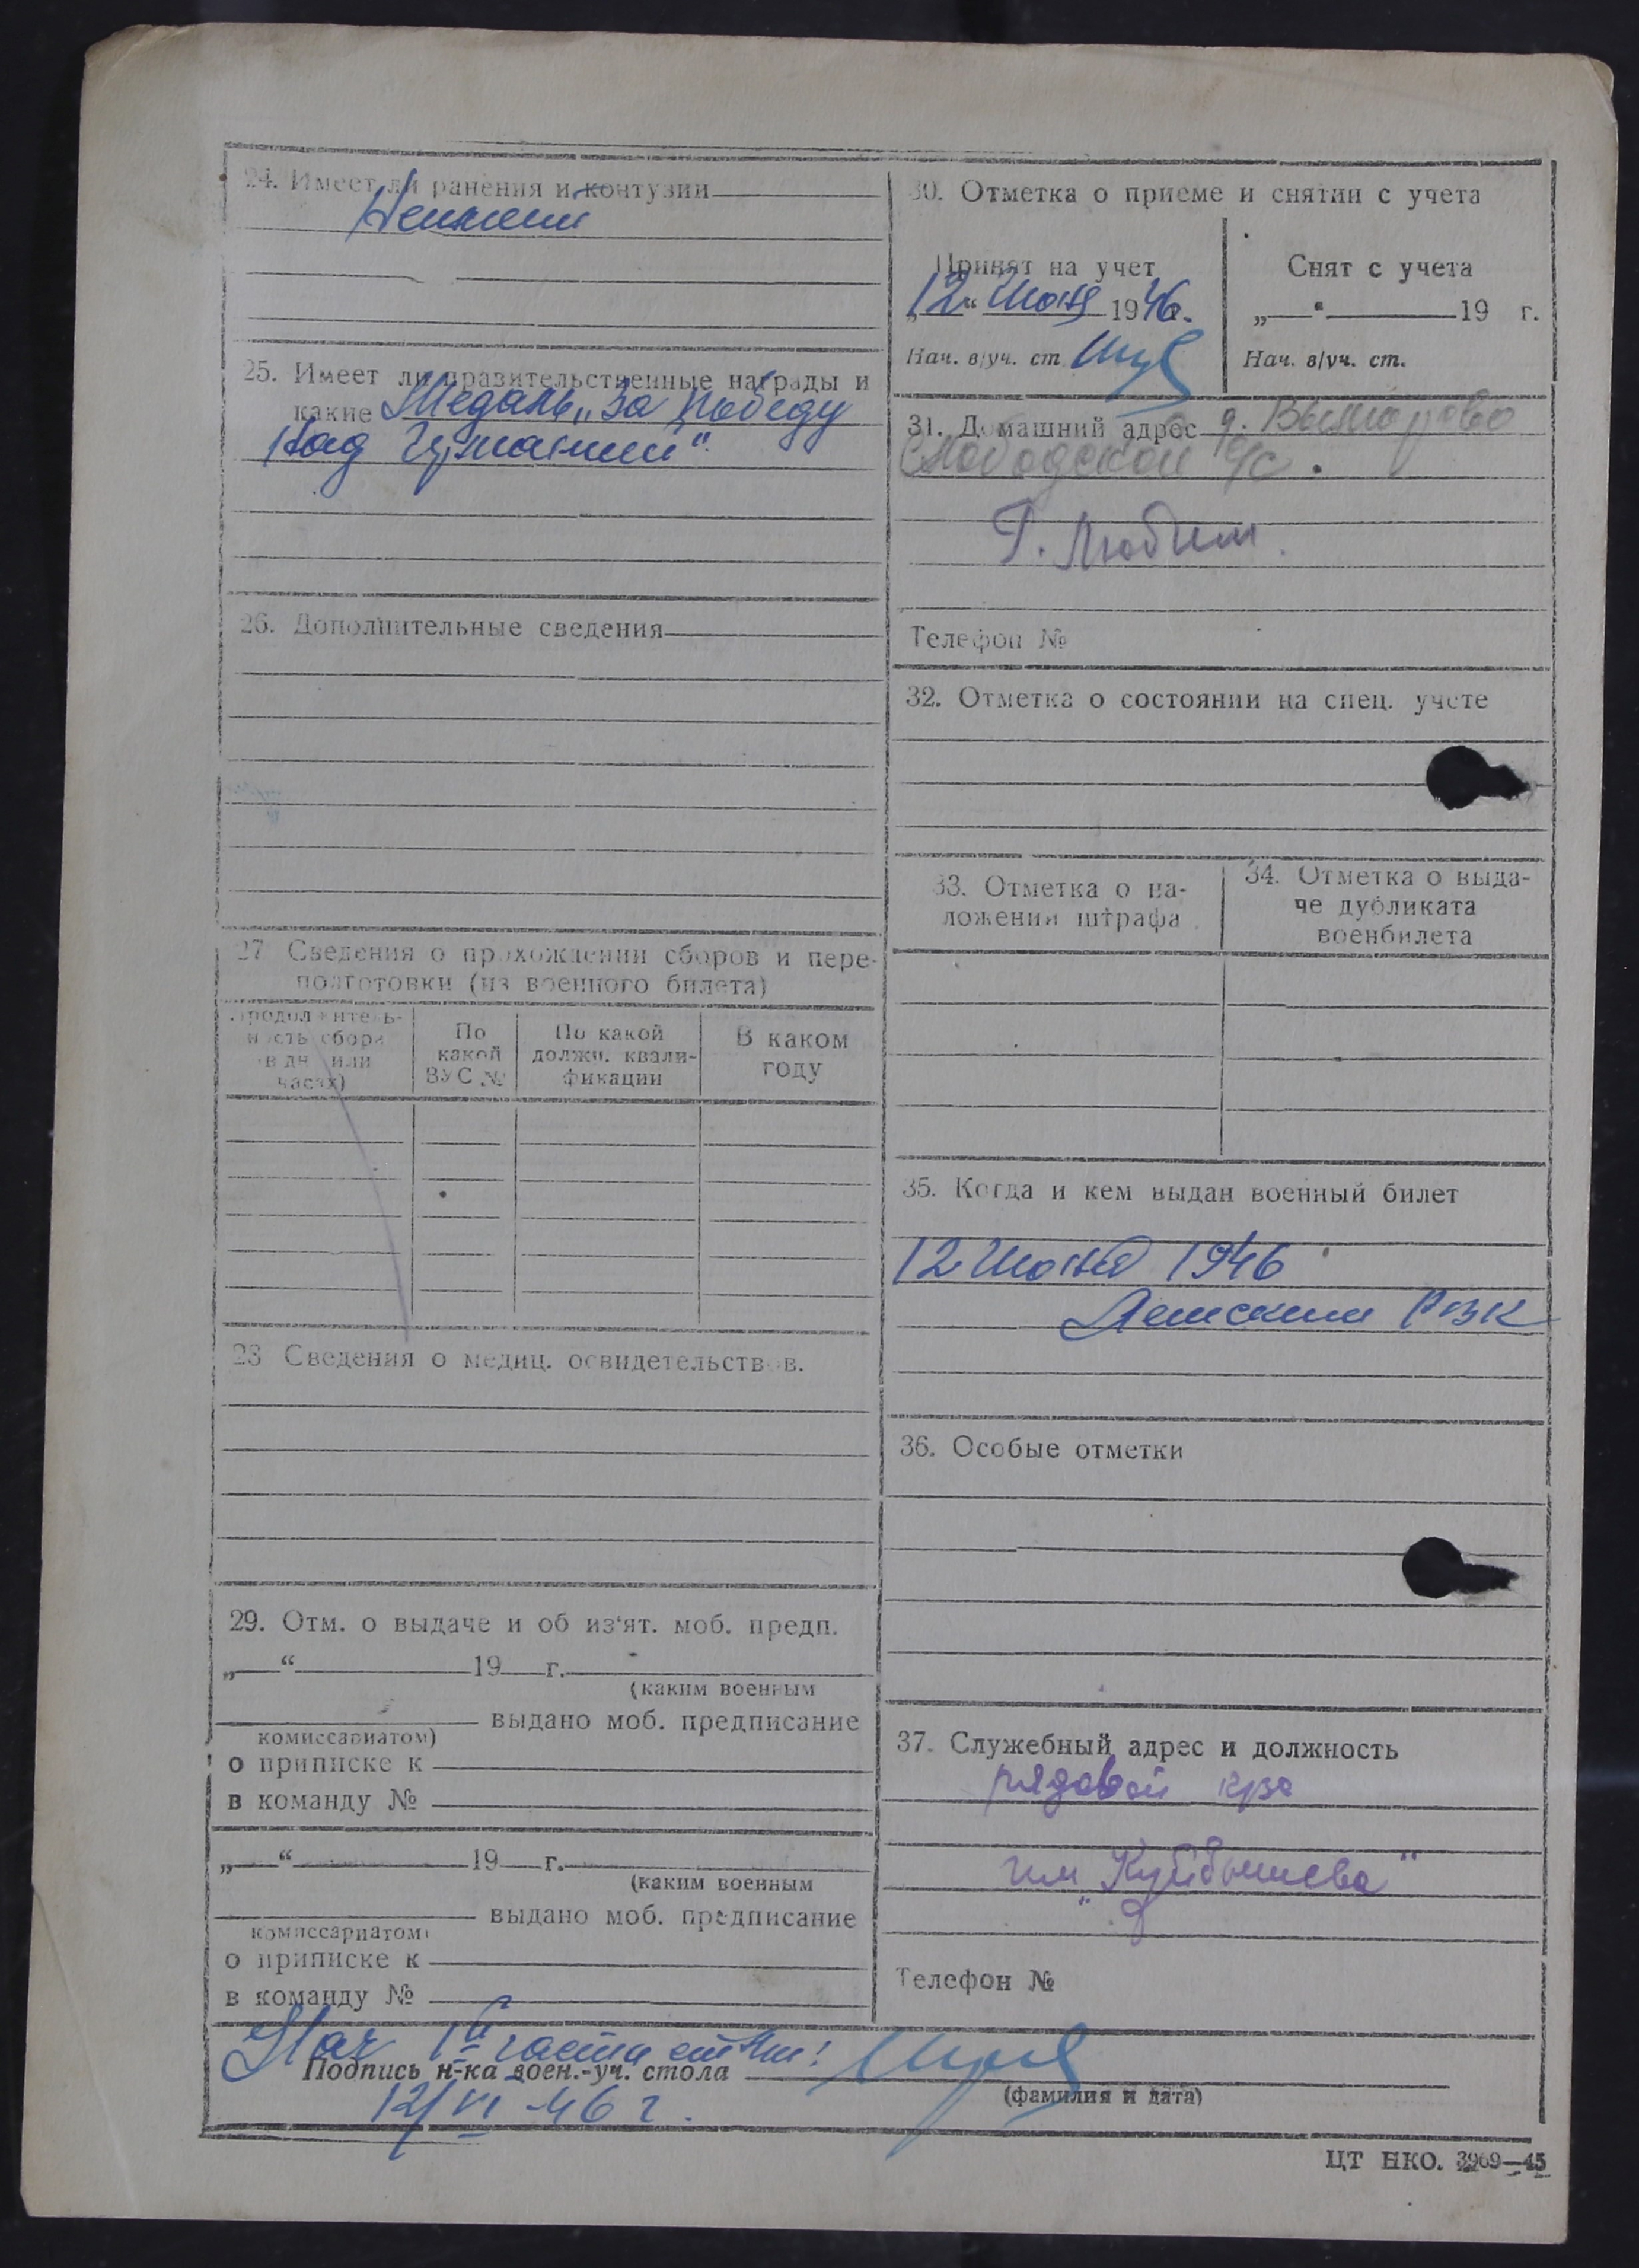 24. Имеет ли ранения и контузии
Неимеет
25. Имеет ли правительственные награды и
какие Медаль „За победу
Над Германией“
26. Дополнительные сведения
27 Сведения о прохождении сборов и пере-
подготовки (из военного билета)
Продолжитель-
ность сбора
(в дн. или
часах)
По
какой
ВУС №
По какой
должн. квали-
фикации
В каком
году
28 Сведения о медиц. освидетельствов.
29. Отм. о выдаче и об из‘ят. моб. предп.
„ “ 19 г.
(каким военным
выдано моб. предписание
комиссариатом)
о приписке к
в команду №
„ “ 19 г.
(каким военным
выдано моб. предписание
комиссариатом)
о приписке к
в команду №
30. Отметка о приеме и снятии с учета
Принят на учет
„12“ Июня 1946.
Нач. в/уч. ст.
Снят с учета
„ “ 19 г.
Нач. в/уч. ст.
31. Домашний адрес д.
Слободской с/с.
Г. Любим.
Телефон №
32. Отметка о состоянии на спец. учете
33. Отметка о на-
ложении штрафа
34. Отметка о выда-
че дубликата
военбилета
35. Когда и кем выдан военный билет
12 Июня 1946
РВК
36. Особые отметки
37. Служебный адрес и должность
рядовой
им „Куйбышева“
Телефон №
Нач 1й части
Подпись н-ка воен.-уч. стола
(фамилия и дата)
12/VI-46 г.
ЦТ НКО. 3969—45